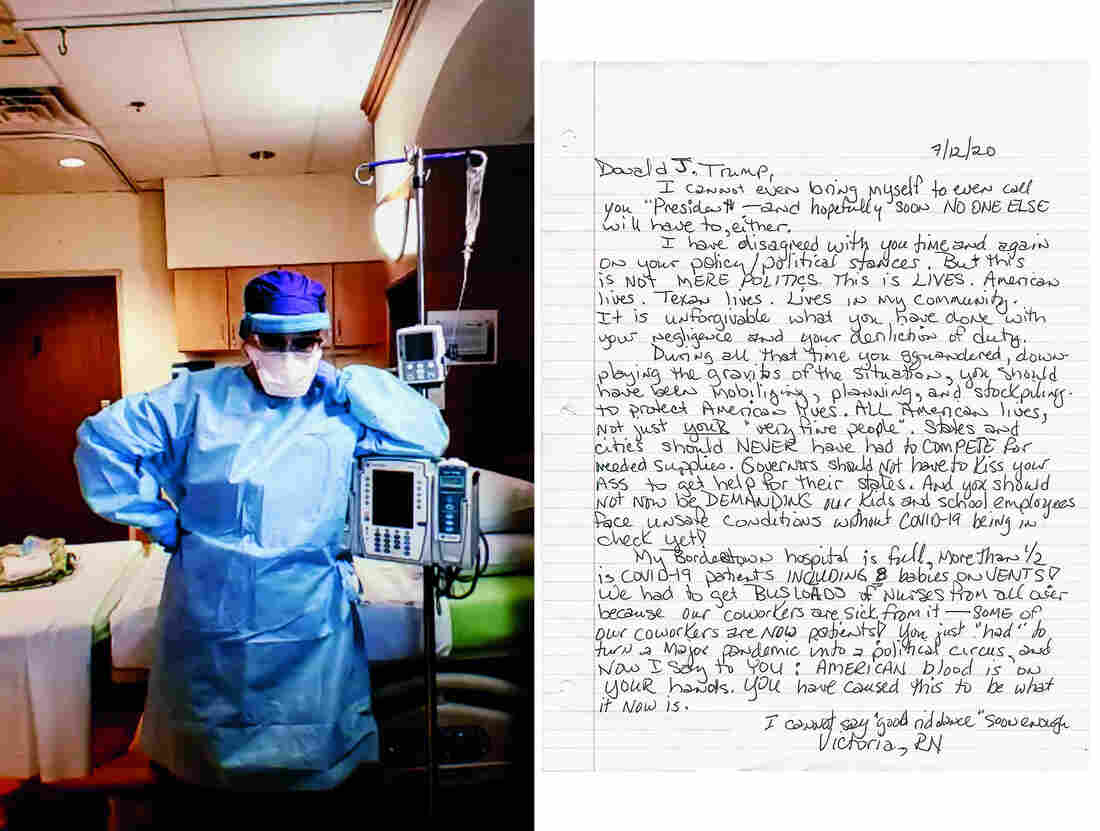 7/12/20
Donald J. Trump,
I cannot even bring myself to even call
you "President" — and hopefully soon NO ONE ELSE
will have to, either.
I have disagreed with you time and again
on your policy/political stances. But this
is NOT MERE POLITICS. This is LIVES. American
lives. Texan lives. Lives in my community.
It is unforgivable what you have done with
your negligence and your derilction of duty.
During all that time you squandered, down-
playing the gravitas of the situation, you should
have been mobilizing, planning, and stockpiling
to protect American lives. ALL American lives,
Not just your "very fine people". States and
cities should NEVER have had to COMPETE for
needed supplies. Governors should Not have to Kiss your
ASS to get help for their states. And you should
NOT NOW be DEMANDING our Kids and school employees
face unsafe conditions without COVID-19 being in
check yet!
My Bordertown hospital is full, More than 1/2
is COVID-19 patients INCLUDING 8 babies ON VENTS!
We had to get BUSLOADS of Nurses from all over
because our coworkers are sick from it — SOME of
our coworkers are NOW patients! You just "had" to
turn a Major pandemic into a political circus, and
NOW I say to YOU: AMERICAN blood is on
YOUR hands. YOU have caused this to be what
it NOW is.
I cannot say "good riddance" soon enough
Victoria, RN